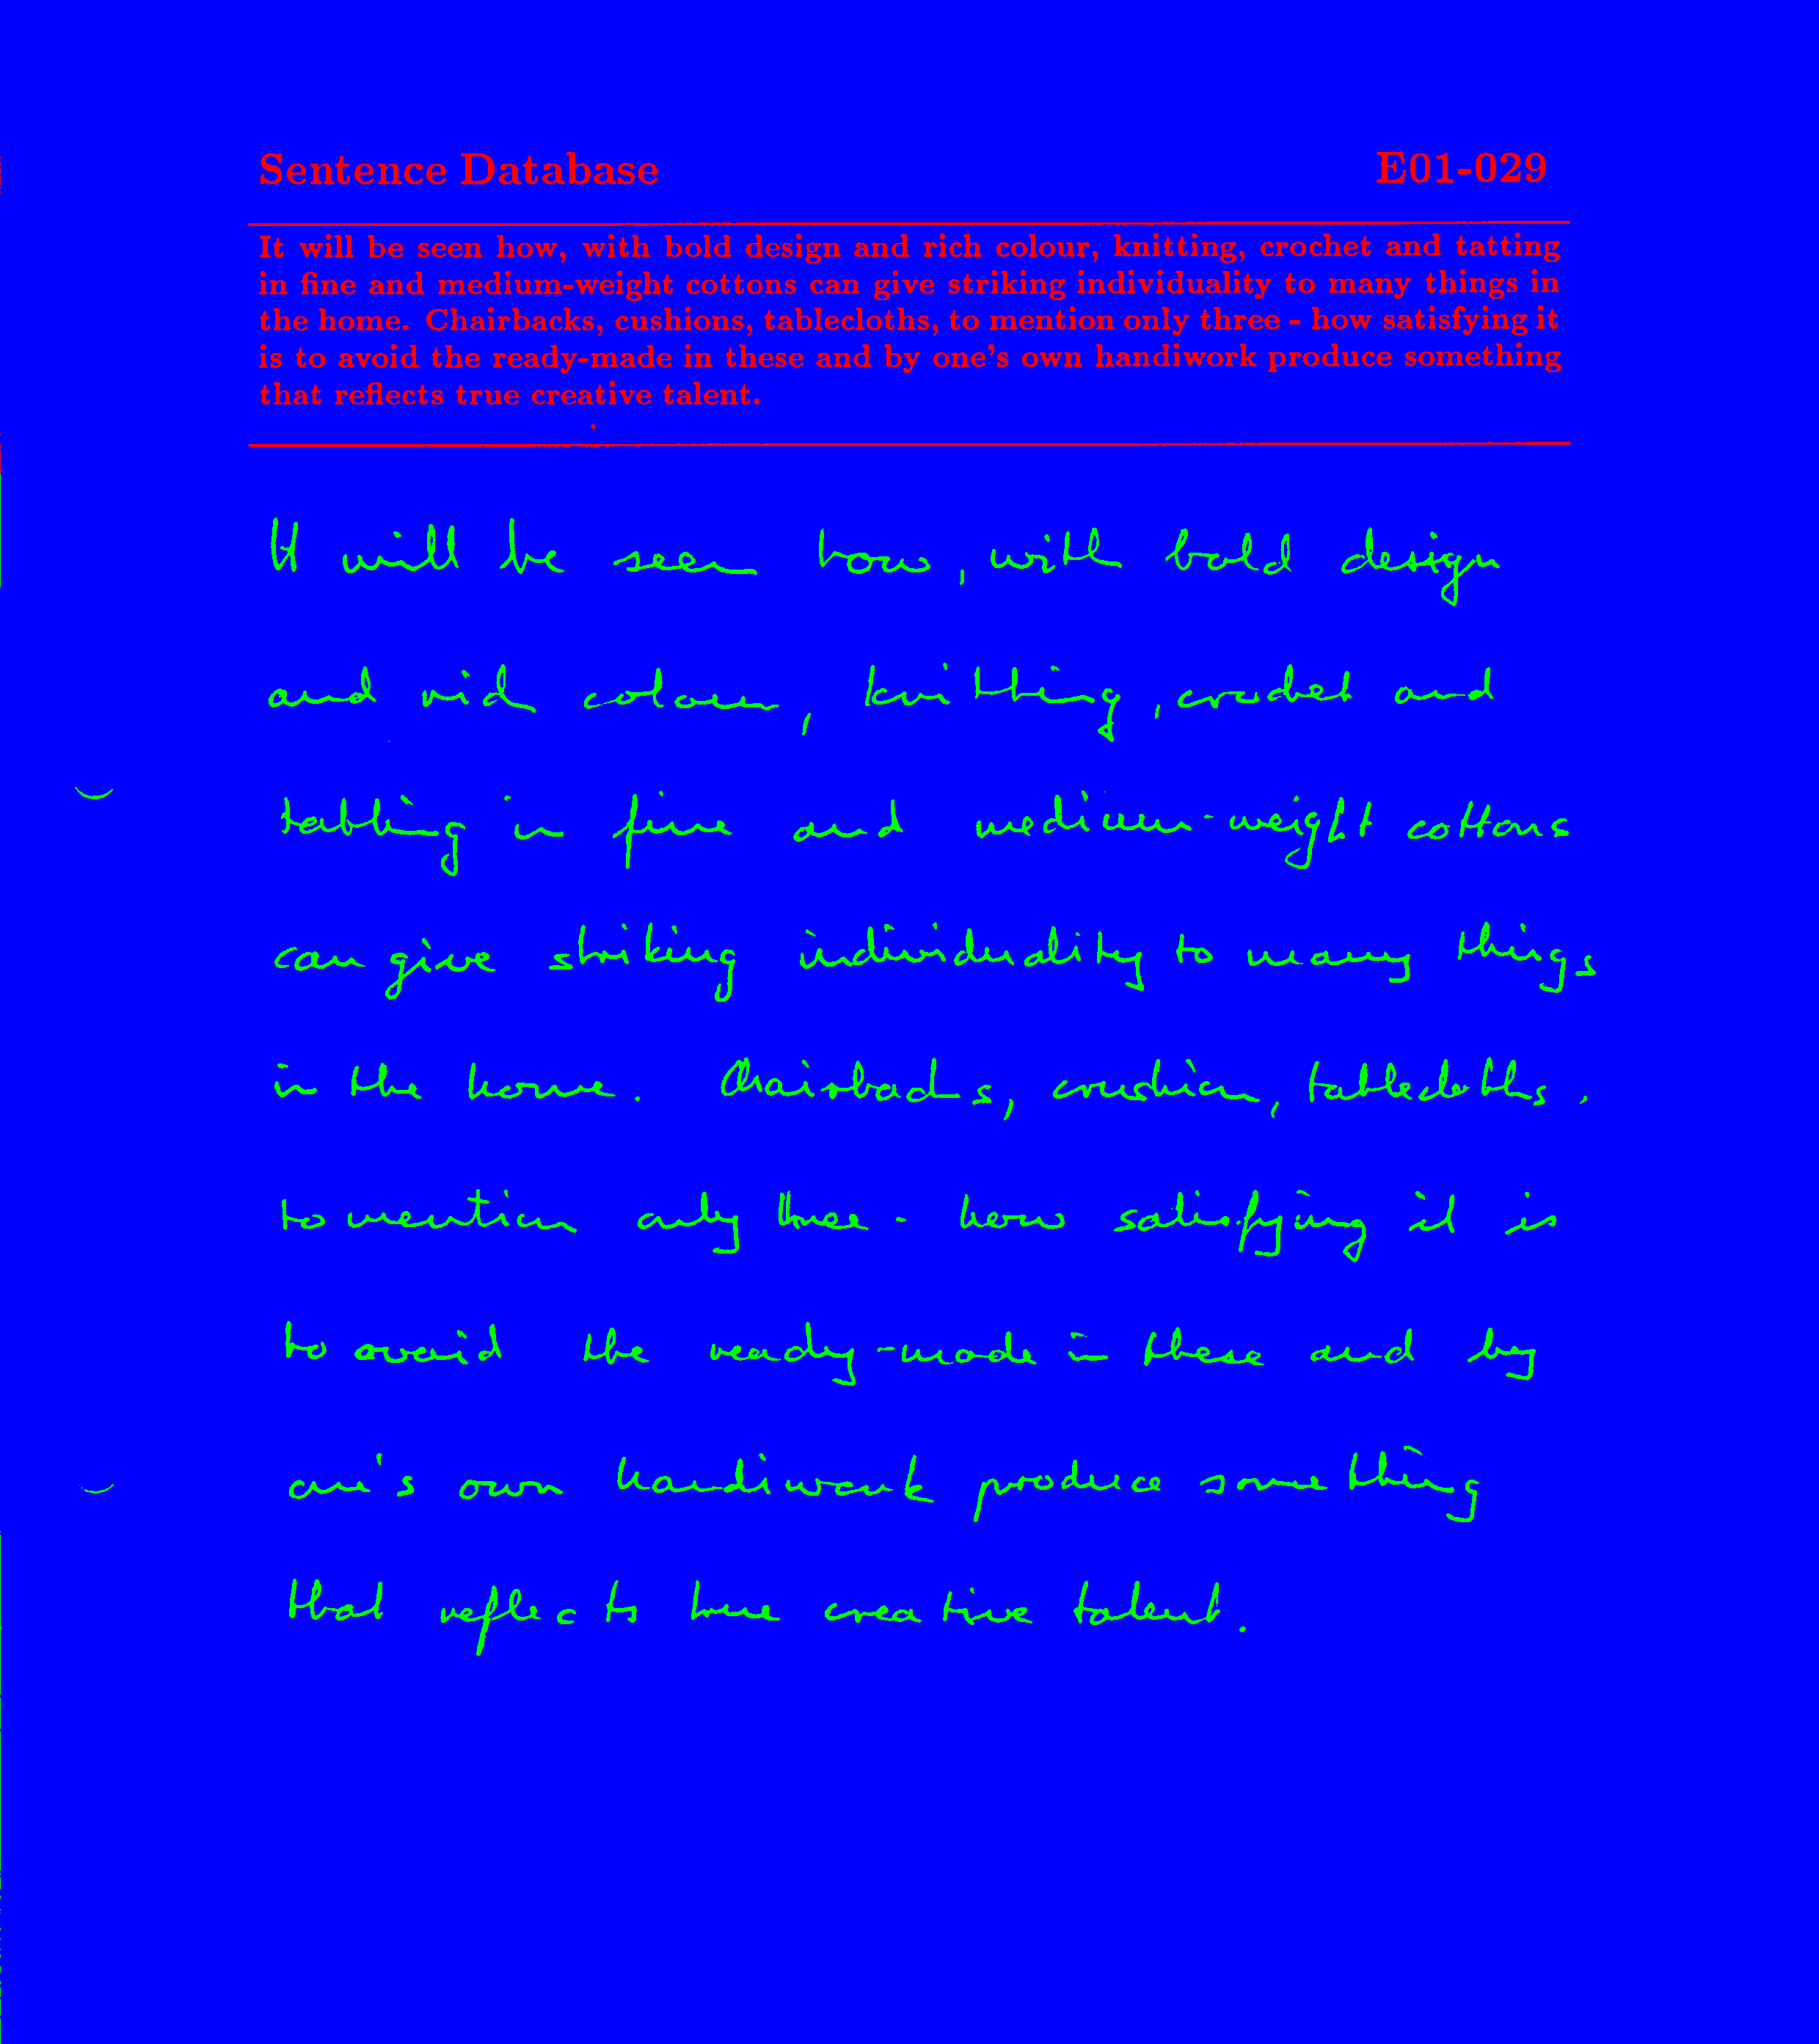 Sentence Database E01-029
It will be seen how, with bold design and rich colour, knitting, crochet and tatting
in fine and medium-weight cottons can give striking individuality to many things in
the home. Chairbacks, cushions, tablecloths, to mention only three - how satisfying it
is to avoid the ready-made in these and by one's own handiwork produce something
that reflects true creative talent.
It will be seen how, with bold design
and rich colour, knitting, crochet and
tatting in fine and medium-weight cottons
can give striking individuality to many things
in the home. Chairbacks, crushion, tablecloths,
to mention only three - how satisfying it is
to avoid the ready-made in these and by
one's own handiwork produce something
that reflects true creative talent.